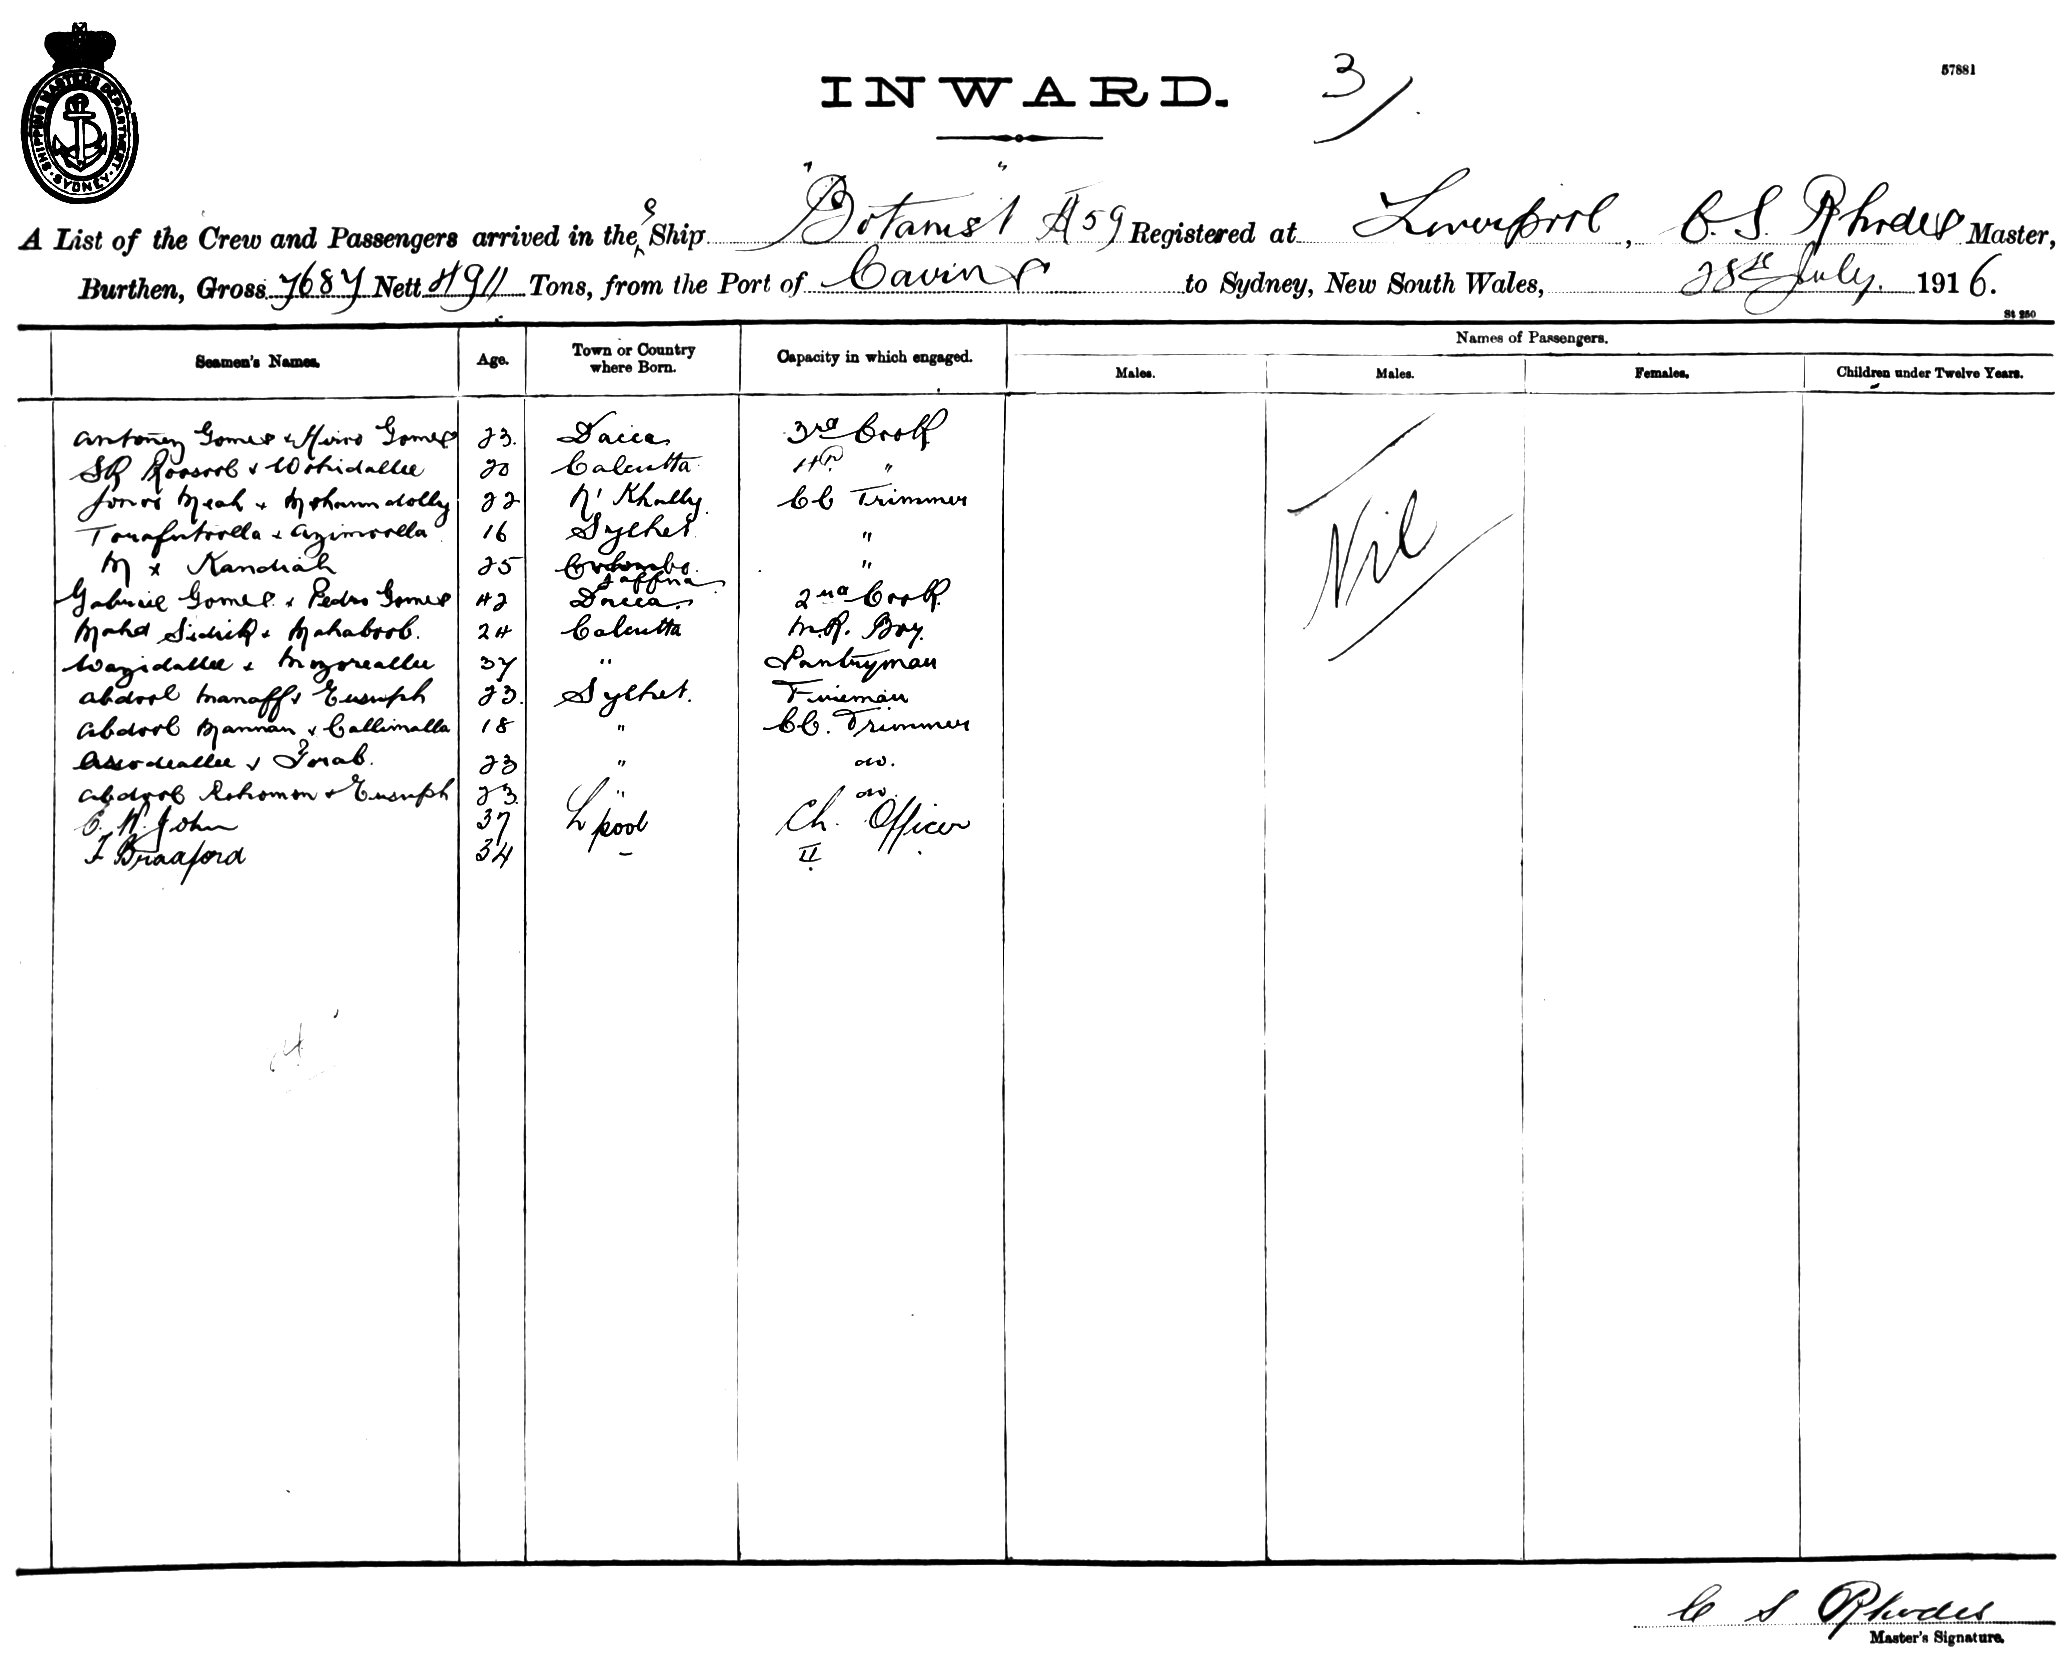 SHIPPING MASTERS DEPARTMENT. SYDNEY.
INWARD. 3/.
57881
A List of the Crew and Passengers arrived in the S Ship "Botanist" A59 Registered at Liverpool, C. S. Rhodes Master,
Burthen, Gross 7687 Nett 4911 Tons, from the Port of Cairns to Sydney, New South Wales, 28th July. 1916.
St 250
Seamen's Names. Age. Town or Country where Born. Capacity in which engaged. Names of Passengers.
Males. Males. Females. Children under Twelve Years.
Gomes x Gomes 23. Dacca 3rd Cook
SK x Wohidallee 20 Calcutta 4th "
Meah x 22 N' Khally CC Trimmer
x Azimoolla 16 Sylhet "
M x Kandiah 25 Colombo Jaffna "
Gabriel Gomes x Pedro Gomes 42 Dacca 2nd Cook
Mahd Sidick x Mahaboob. 24 Calcutta M.R. Boy.
Wazidallee x 37 " Pantryman
Abdool Manaff x Eusuph 23. Sylhet. Fireman
Abdool Mannan x Callimalla 18 " CC. Trimmer
x 23 " do.
Abdool Rohomon x Eusuph 23. " do.
C. W. John 37 L'pool Ch. Officer
F Bradford 34 - II
Nil
C S Rhodes
Master's Signature.